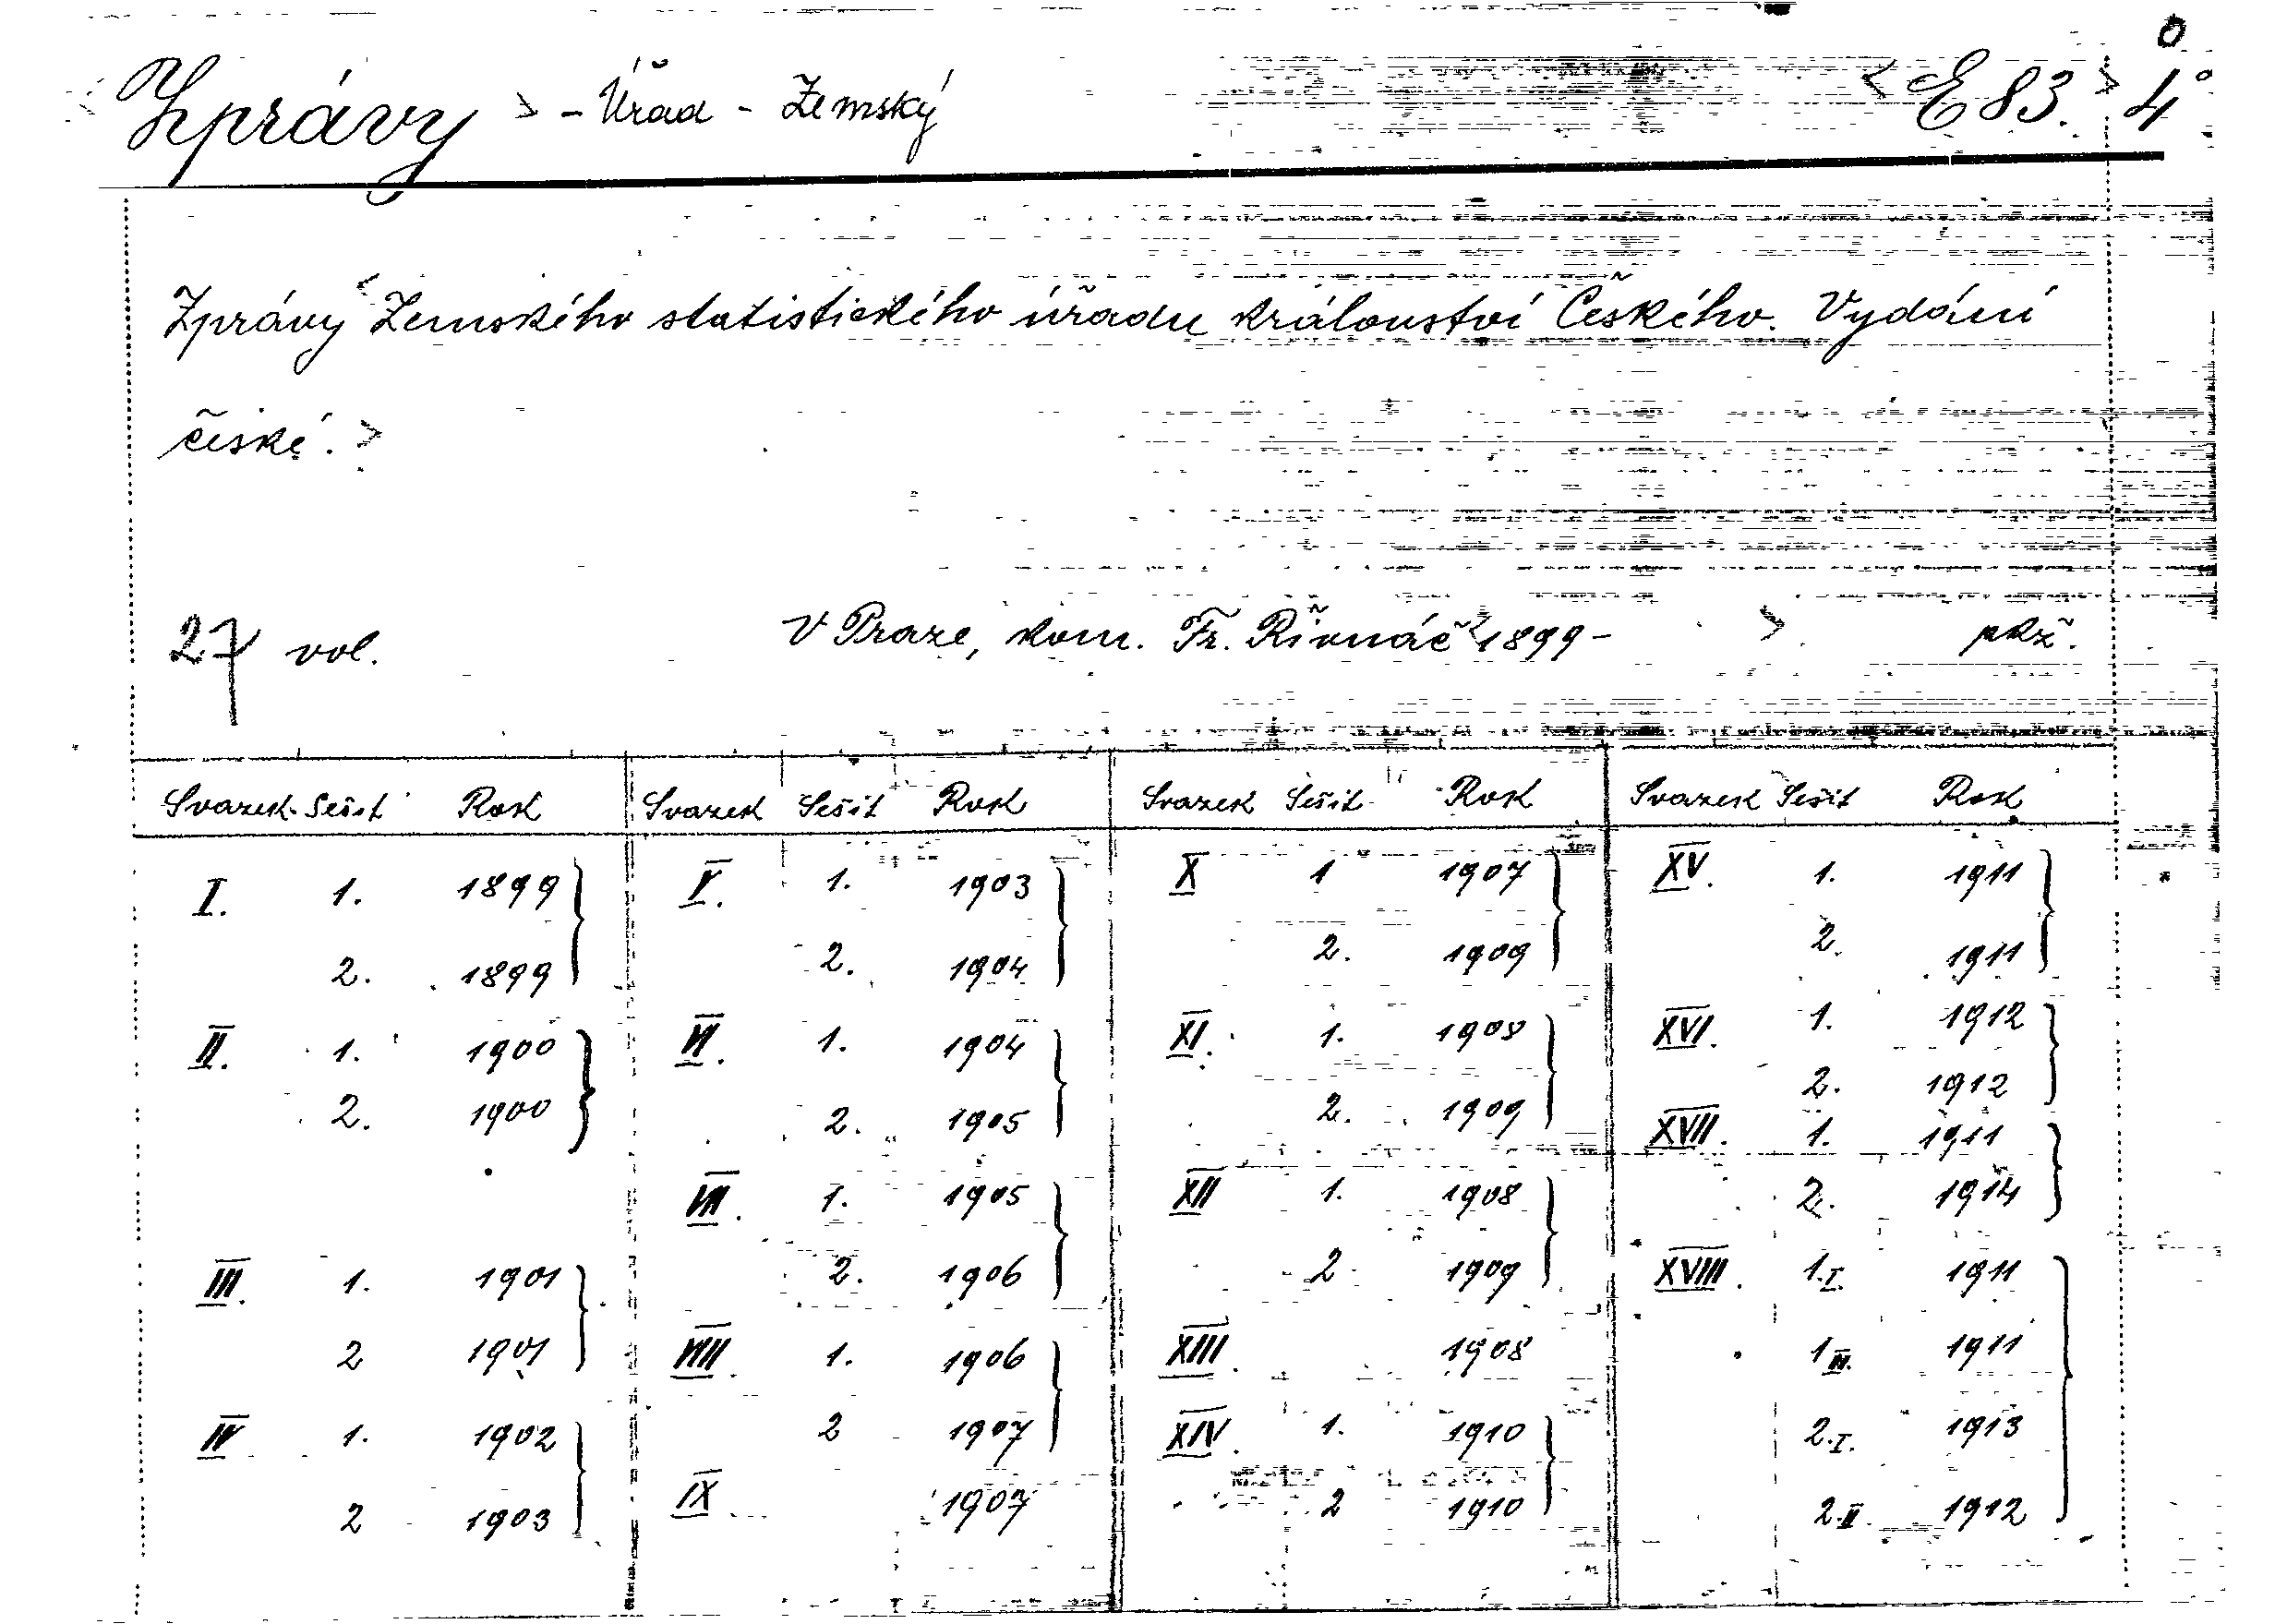 Zprávy > - Úřad - Zemský < E 83. > 4°
Zprávy < Zemského statistického úřadu království Českého. Vydání
české. >
27 vol. V Praze, kom. Fr. Řivnáč < 1899 - > pkž.
Svazek Sešit Rok Svazek Sešit Rok Svazek Sešit Rok Svazek Sešit Rok
I. 1. 1899 V. 1. 1903 X 1 1907 XV. 1. 1911
2. 1899 2. 1904 2. 1909 2. 1911
II. 1. 1900 VI. 1. 1904 XI. 1. 1908 XVI. 1. 1912
2. 1900 2. 1905 2. 1909 2. 1912
XVII. 1. 1911
VII. 1. 1905 XII 1. 1908 2. 1914
III. 1. 1901 2. 1906 2 1909 XVIII. 1.I. 1911
2 1901 VIII. 1. 1906 XIII. 1908 1 1911
IV 1. 1902 2 1907 XIV. 1. 1910 2.I. 1913
2 1903 IX 1907 2 1910 2.II. 1912